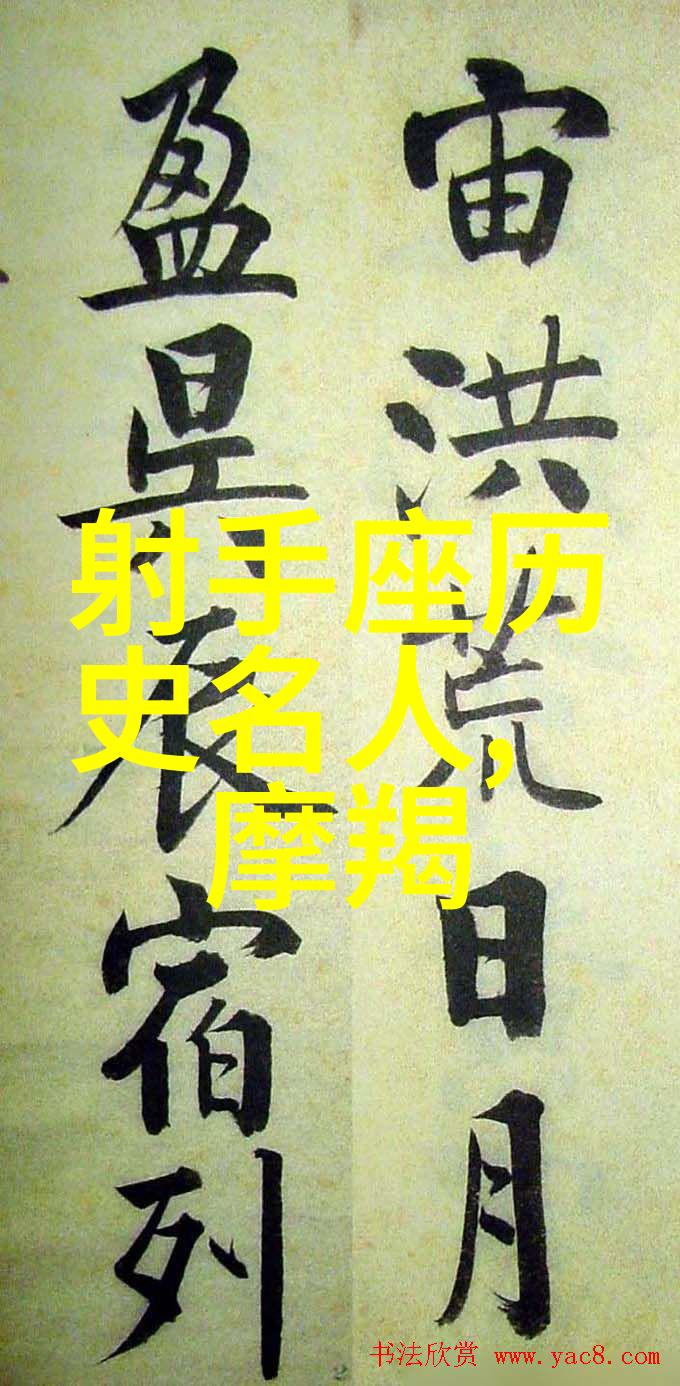 宙洪荒日月
盈昃辰宿列
射手座历
史名人,
摩羯
2
书法欣赏 www.yac8.com